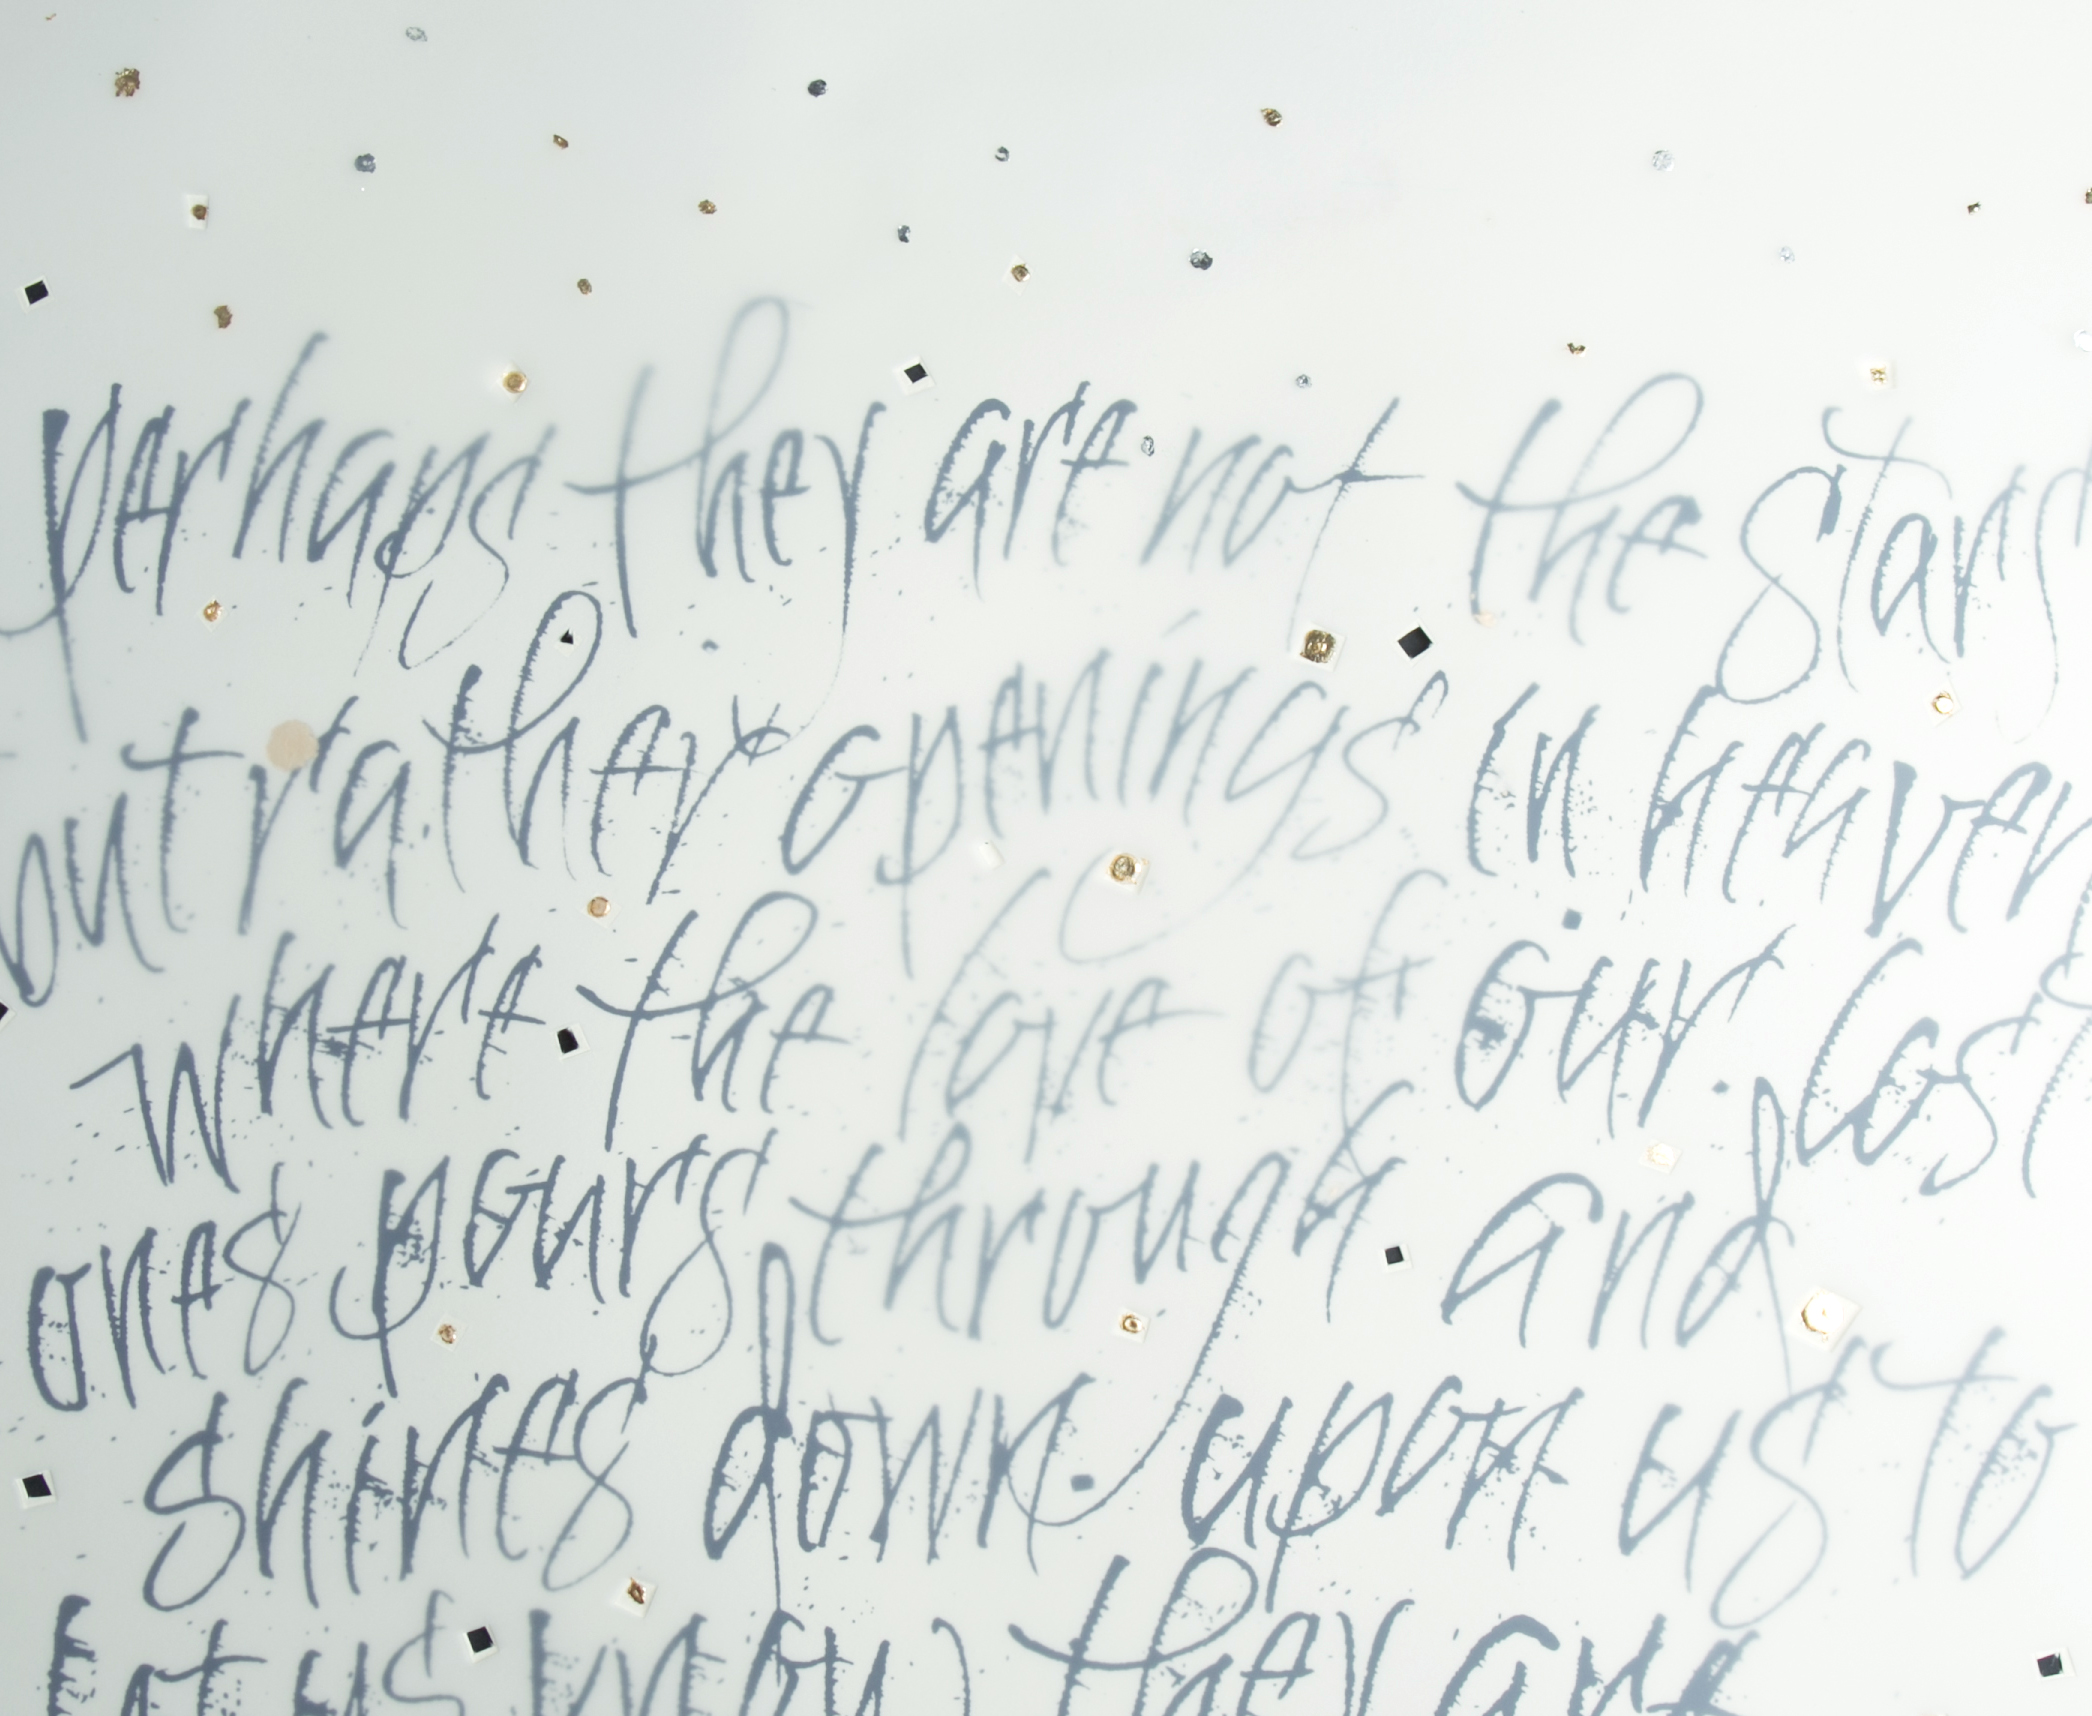 perhaps they are not the stars
but rather openings in heaven
where the love of our lost
ones pours through and
shines down upon us to
let us know they are